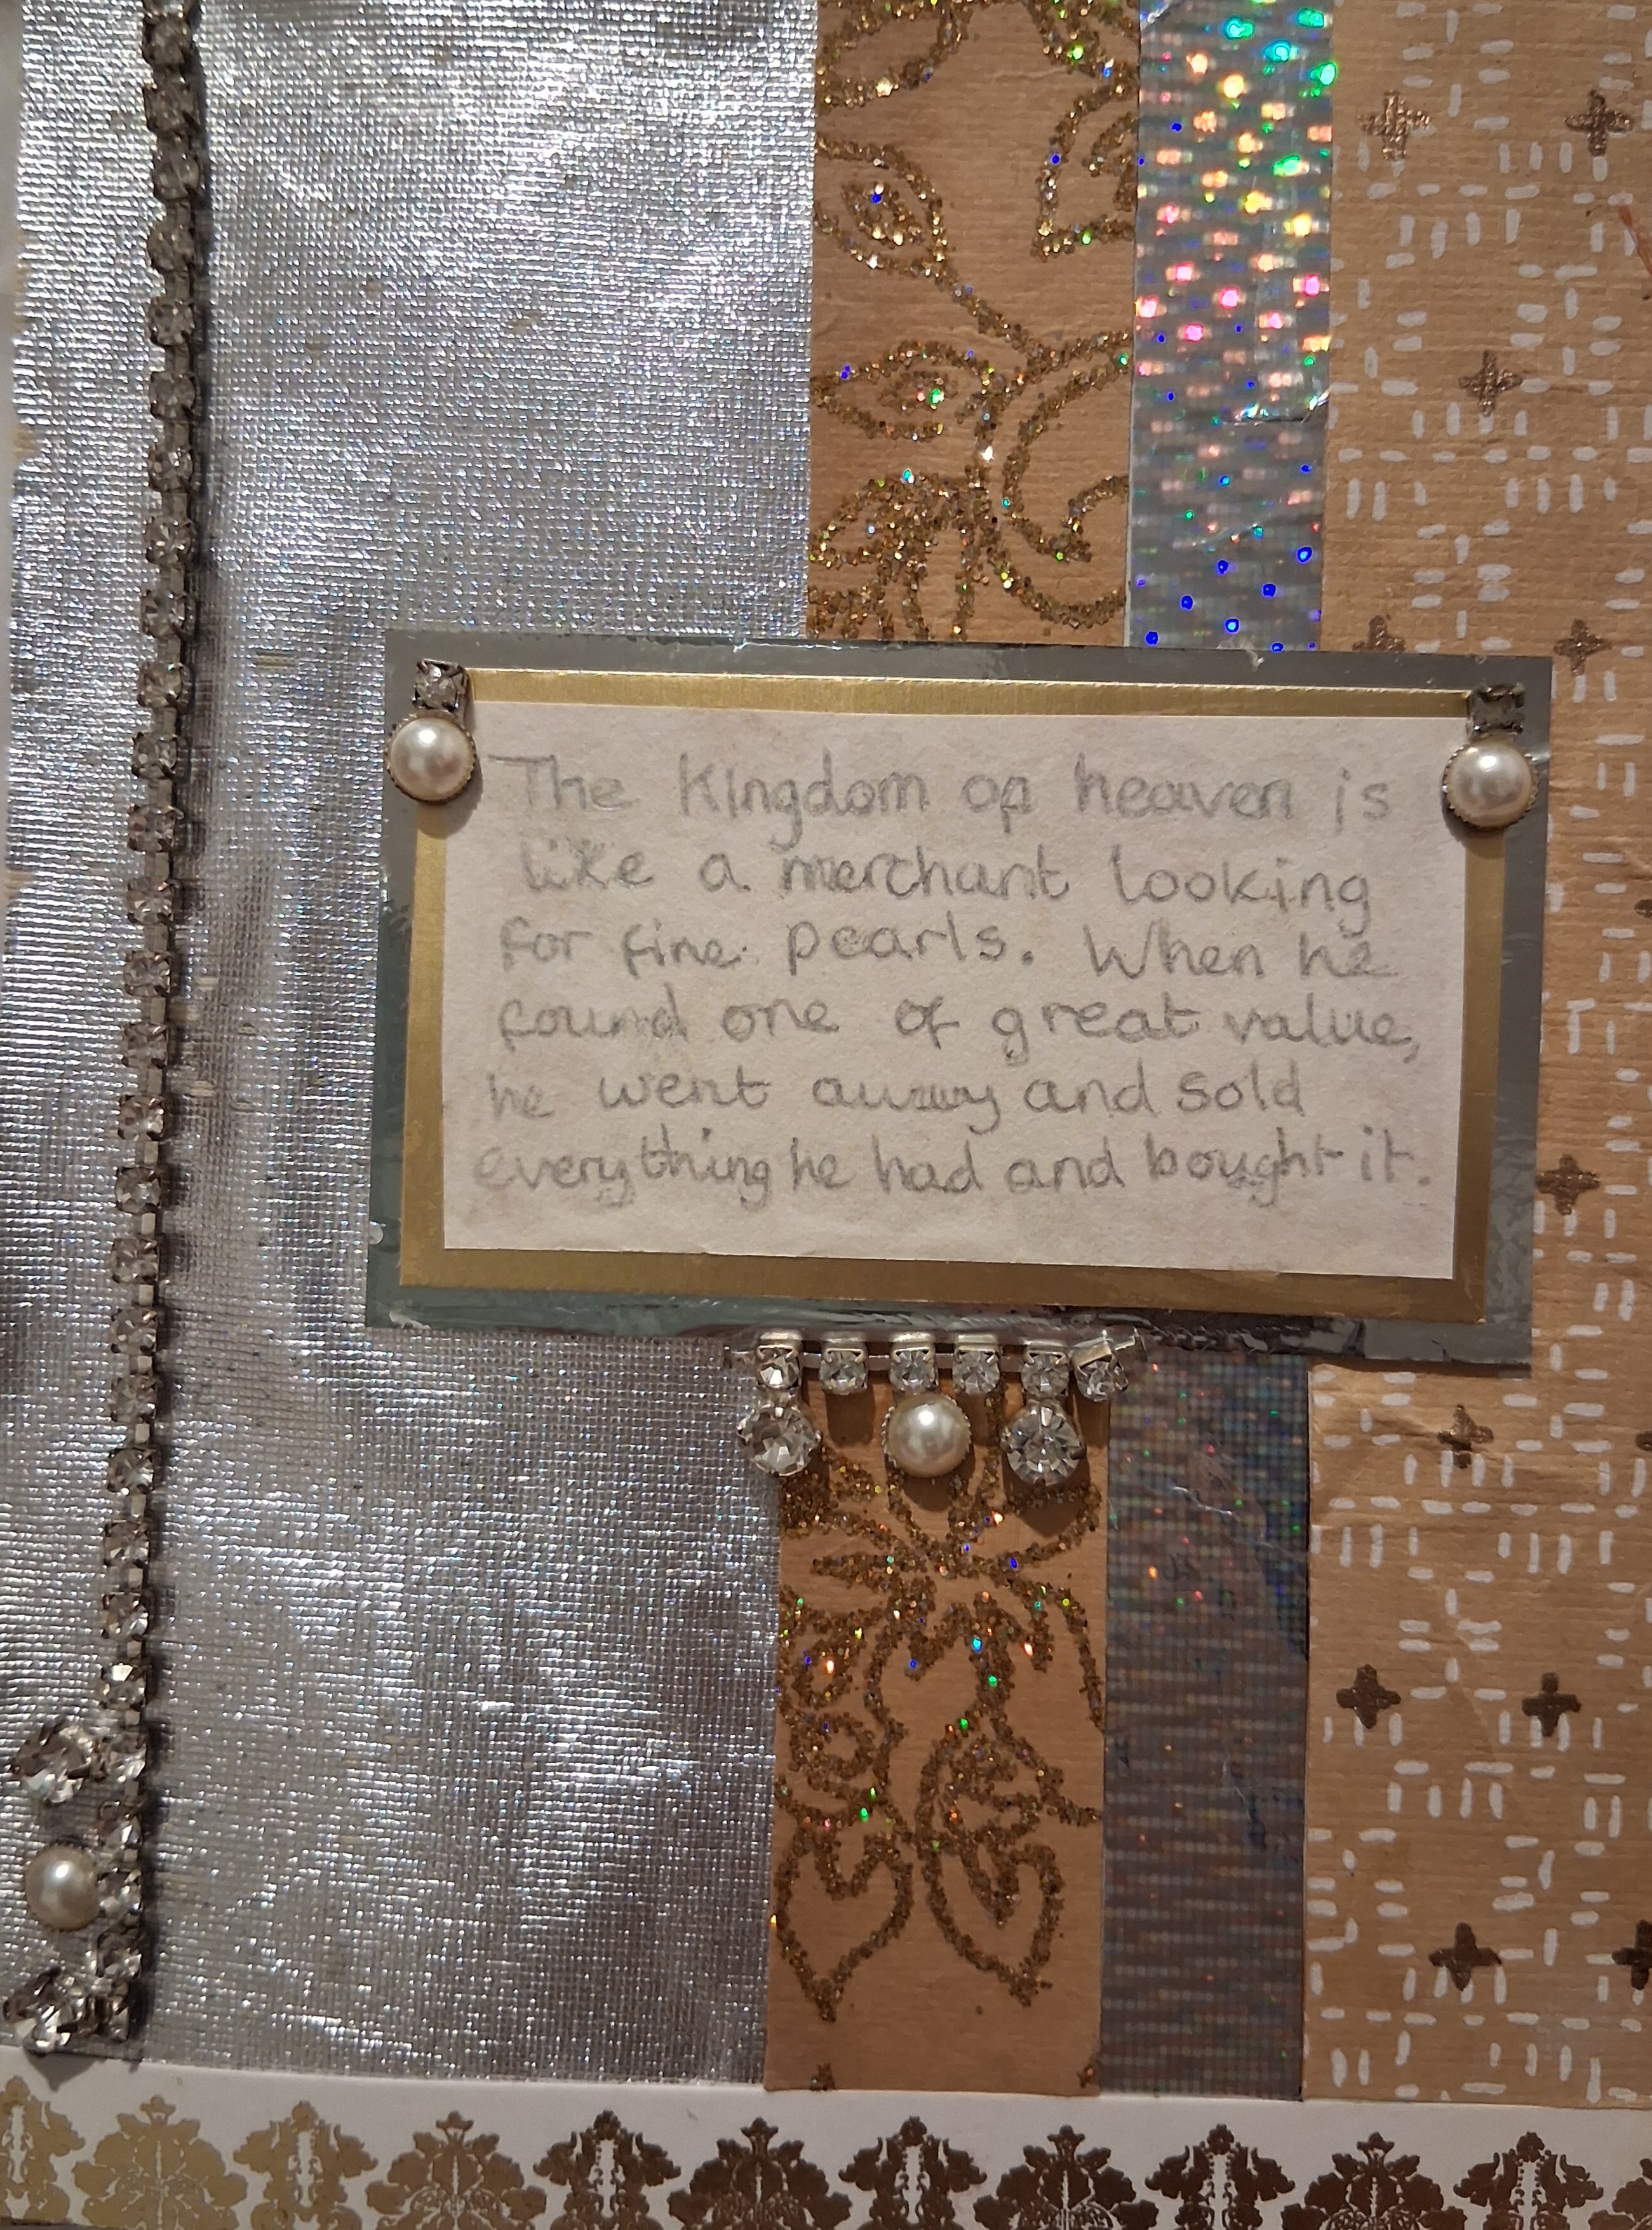 The Kingdom of heaven is
like a merchant looking
for fine pearls. When he
found one of great value,
he went away and sold
everything he had and bought it.